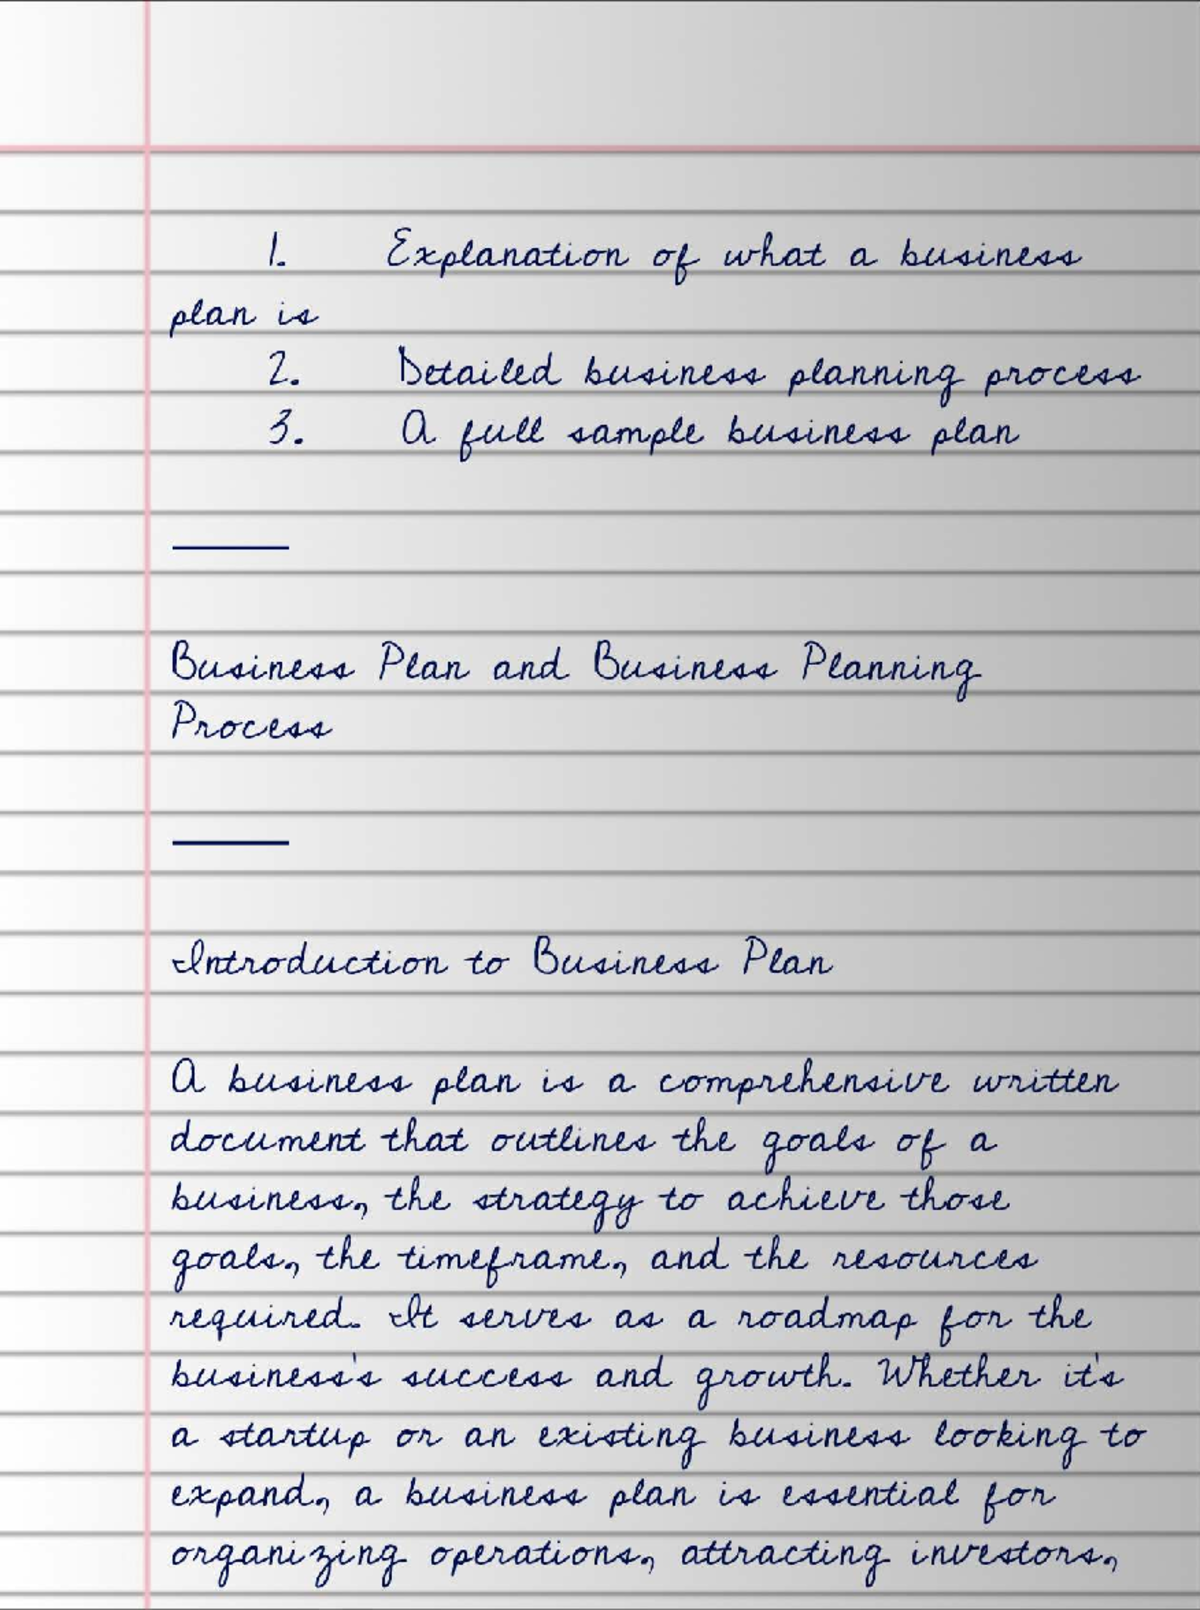 1. Explanation of what a business
plan is
2. Detailed business planning process
3. A full sample business plan
Business Plan and Business Planning
Process
Introduction to Business Plan
A business plan is a comprehensive written
document that outlines the goals of a
business, the strategy to achieve those
goals, the timeframe, and the resources
required. It serves as a roadmap for the
business's success and growth. Whether it's
a startup or an existing business looking to
expand, a business plan is essential for
organizing operations, attracting investors,